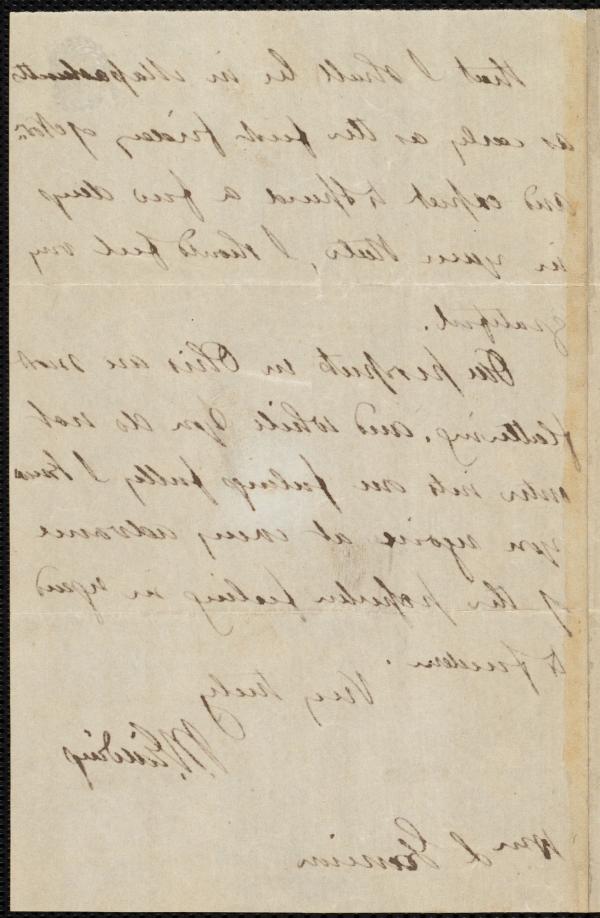 that I shall be in Massachusetts
as early as the first friday of
and expect to spend a few days
in your State, I should feel very
grateful.
Our prospects in Ohio are most
flattering, and while you do not
enter into our feelings fully I know
you rejoice at every advance
of the popular feeling in regard
to freedom.
Very truly
Giddings
Wm L Garrison